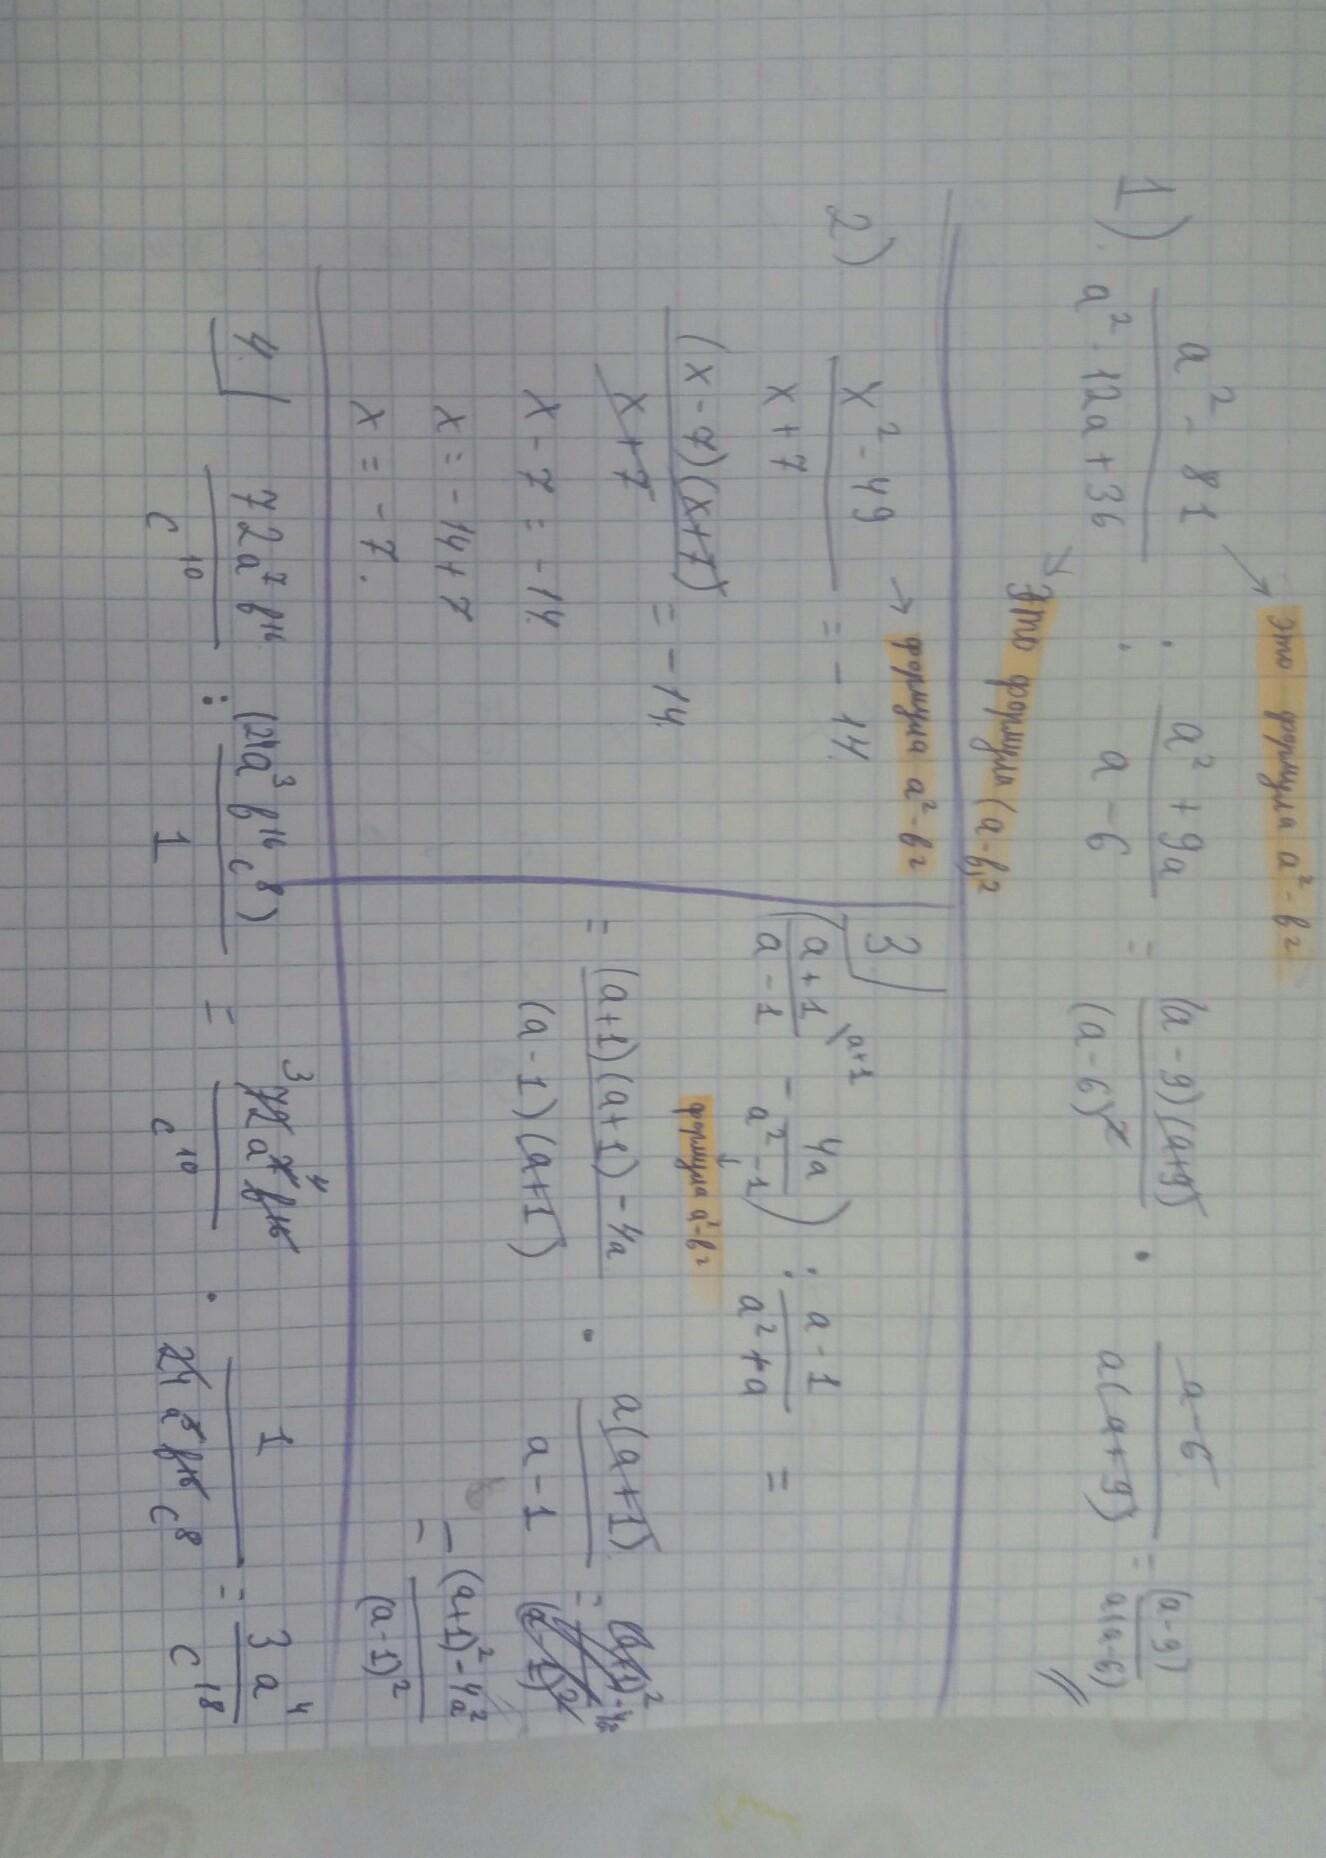 это формула a² - b²
1). (a² - 81)/(a² - 12a + 36) : (a² + 9a)/(a - 6) = ((a - 9)(a + 9))/(a - 6)² · (a - 6)/(a(a + 9)) = (a - 9)/(a(a - 6))
это формула (a - b)²
2) (x² - 49)/(x + 7) = - 14
→ формула a² - b²
((x - 7)(x + 7))/(x + 7) = - 14
x - 7 = - 14
x = - 14 + 7
x = - 7.
3) ((a + 1)/(a - 1) \a+1 - 4a/(a² - 1)) : (a - 1)/(a² + a) =
формула a² - b²
= ((a + 1)(a + 1) - 4a)/((a - 1)(a + 1)) · (a(a + 1))/(a - 1) =
= ((a + 1)² - 4a²)/(a - 1)²
4) 72a⁷b¹⁶/c¹⁰ : (24a³b¹⁶c⁸)/1 = 72a⁷b¹⁶/c¹⁰ · 1/(24a³b¹⁶c⁸) = 3a⁴/c¹⁸